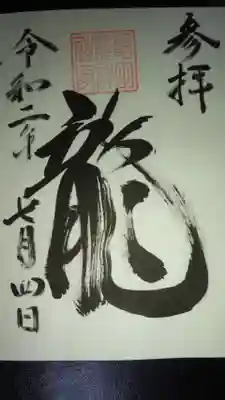 参拝
龍
令和二年
七月四日